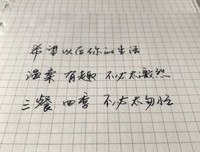 希望以后你的生活
温柔 有趣 不必太激烈
三餐 四季 不必太匆忙